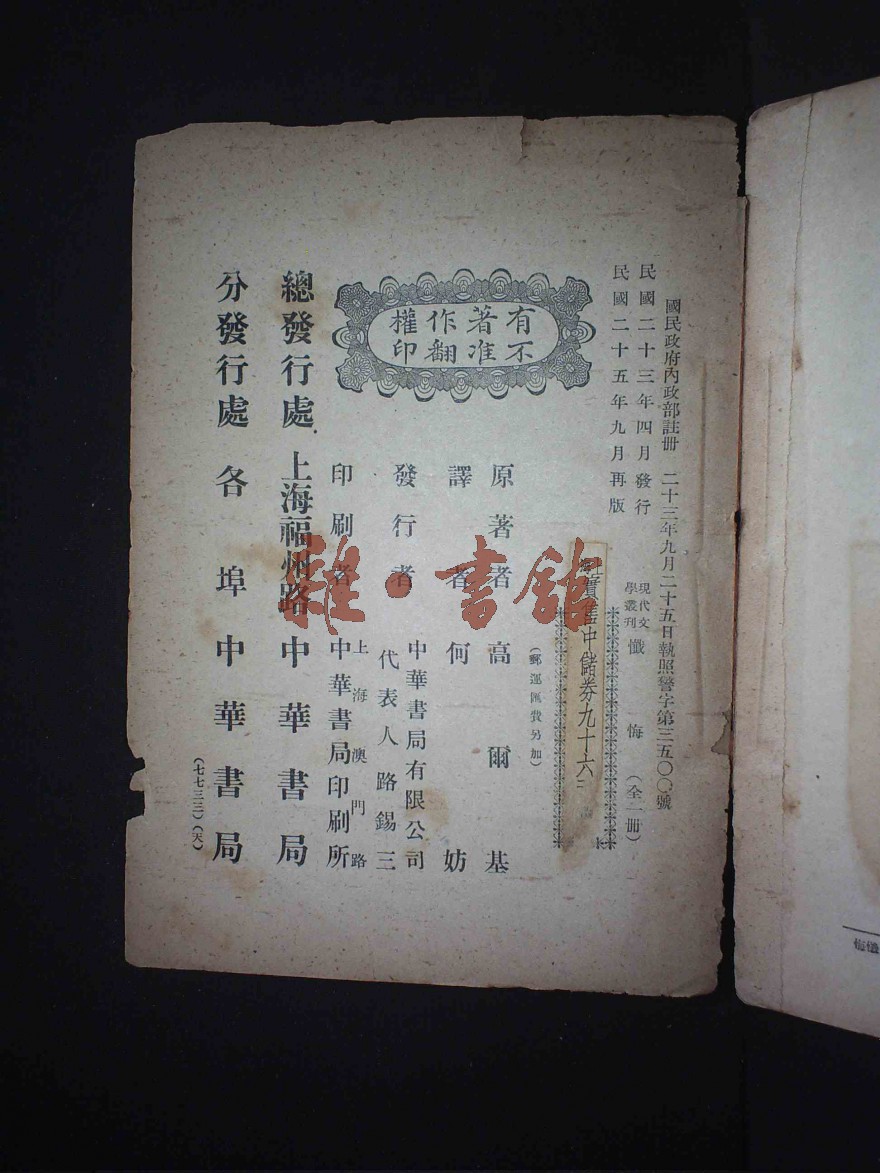 國民政府內政部註冊 二十三年九月二十五日執照警字第三五〇〇號
民國二十三年四月發行
民國二十五年九月再版
現代文
學叢刊
懺悔(全一冊)
實售中儲券九十六
(郵運匯費另加)
有著作權
不准翻印
原著者 高爾基
譯者 何妨
發行者 中華書局有限公司
代表人路錫三
印刷者 上海澳門路
中華書局印刷所
總發行處 上海福州路 中華書局
分發行處 各埠中華書局
(七七三三)(天)
雜·書館
懺悔